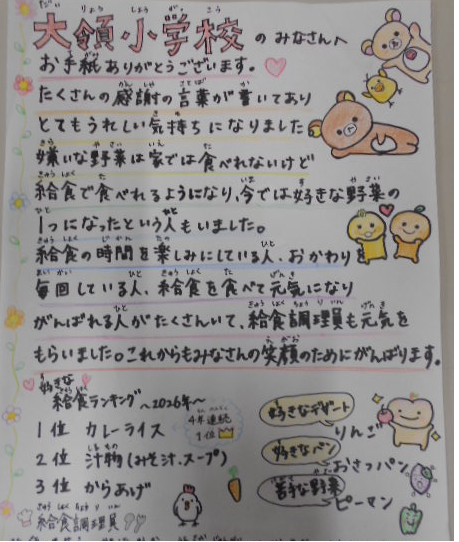 大領小学校のみなさんへ
お手紙ありがとうございます。
たくさんの感謝の言葉が書いてあり
とてもうれしい気持ちになりました
嫌いな野菜は家では食べれないけど
給食で食べれるようになり、今では好きな野菜の
1つになったという人もいました。
給食の時間を楽しみにしている人、おかわりを
毎回している人、給食を食べて元気になり
がんばれる人がたくさんいて、給食調理員も元気を
もらいました。これからもみなさんの笑顔のためにがんばります。
好きな
給食ランキング ~2026年~
1位 カレーライス
4年連続
1位
2位 汁物(みそ汁.スープ)
3位 からあげ
給食調理員
好きなデザート
りんご
好きなパン
おさつパン
苦手な野菜
ピーマン